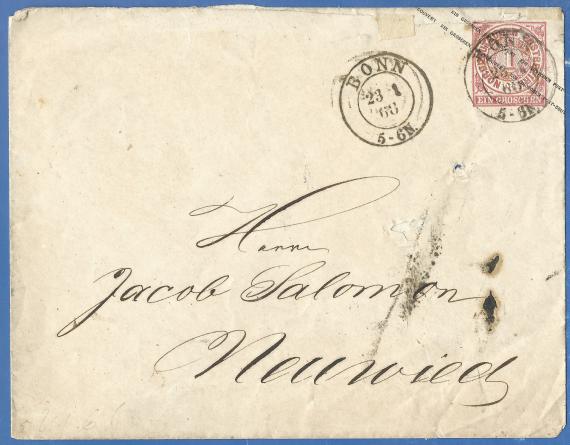 BONN
23 1
68
5-6N.
1
EIN GROSCHEN
5-6N.
Herrn
Jacob Salomon
Neuwied